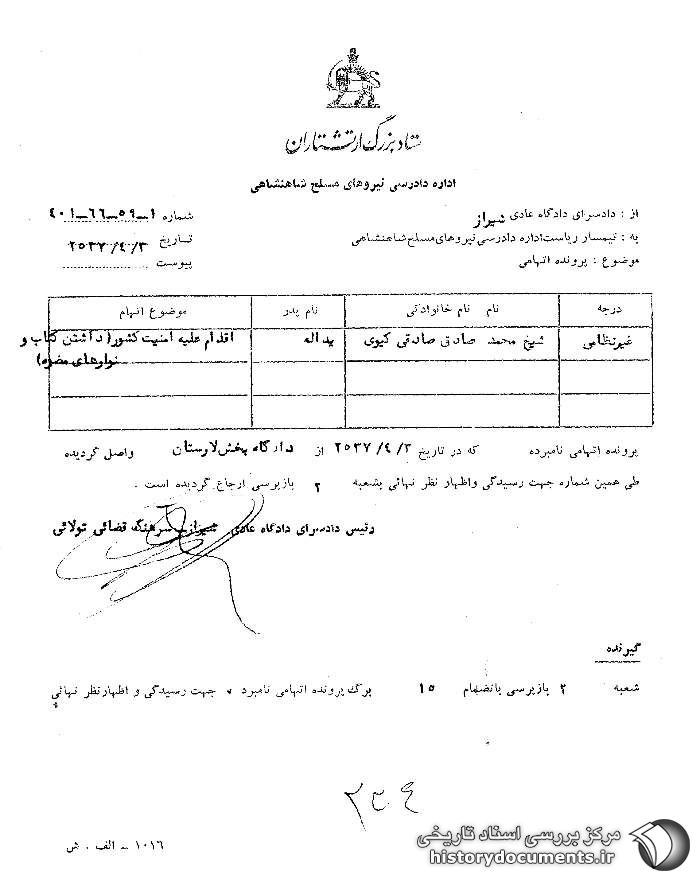 ستاد بزرگ ارتشتاران
اداره دادرسی نیروهای مسلح شاهنشاهی
از : دادسرای دادگاه عادی شیراز
شماره ۱-۵۹-۶۶-۴۰۱
به : تیمسار ریاست اداره دادرسی نیروهای مسلح شاهنشاهی
تاریخ ۲۵۳۷/۴/۳
موضوع : پرونده اتهامی
پیوست
درجه نام نام خانوادگی نام پدر موضوع اتهام
غیرنظامی شیخ محمد صادق صادقی کیوی یداله اقدام علیه امنیت کشور( داشتن کتاب و
نوارهای مضره)
پرونده اتهامی نامبرده که در تاریخ ۲۵۳۷/۴/۳ از دادگاه بخش لارستان واصل گردیده
طی همین شماره جهت رسیدگی و اظهار نظر نهائی بشعبه ۲ بازپرسی ارجاع گردیده است .
رئیس دادسرای دادگاه عادی شیراز- سرهنگ قضائی تولائی
گیرنده
شعبه ۲ بازپرسی بانضمام ۱۵ برگ پرونده اتهامی نامبرده جهت رسیدگی و اظهارنظر نهائی
۱۰۱۶ - الف . ش
مرکز بررسی اسناد تاریخی
historydocuments.ir